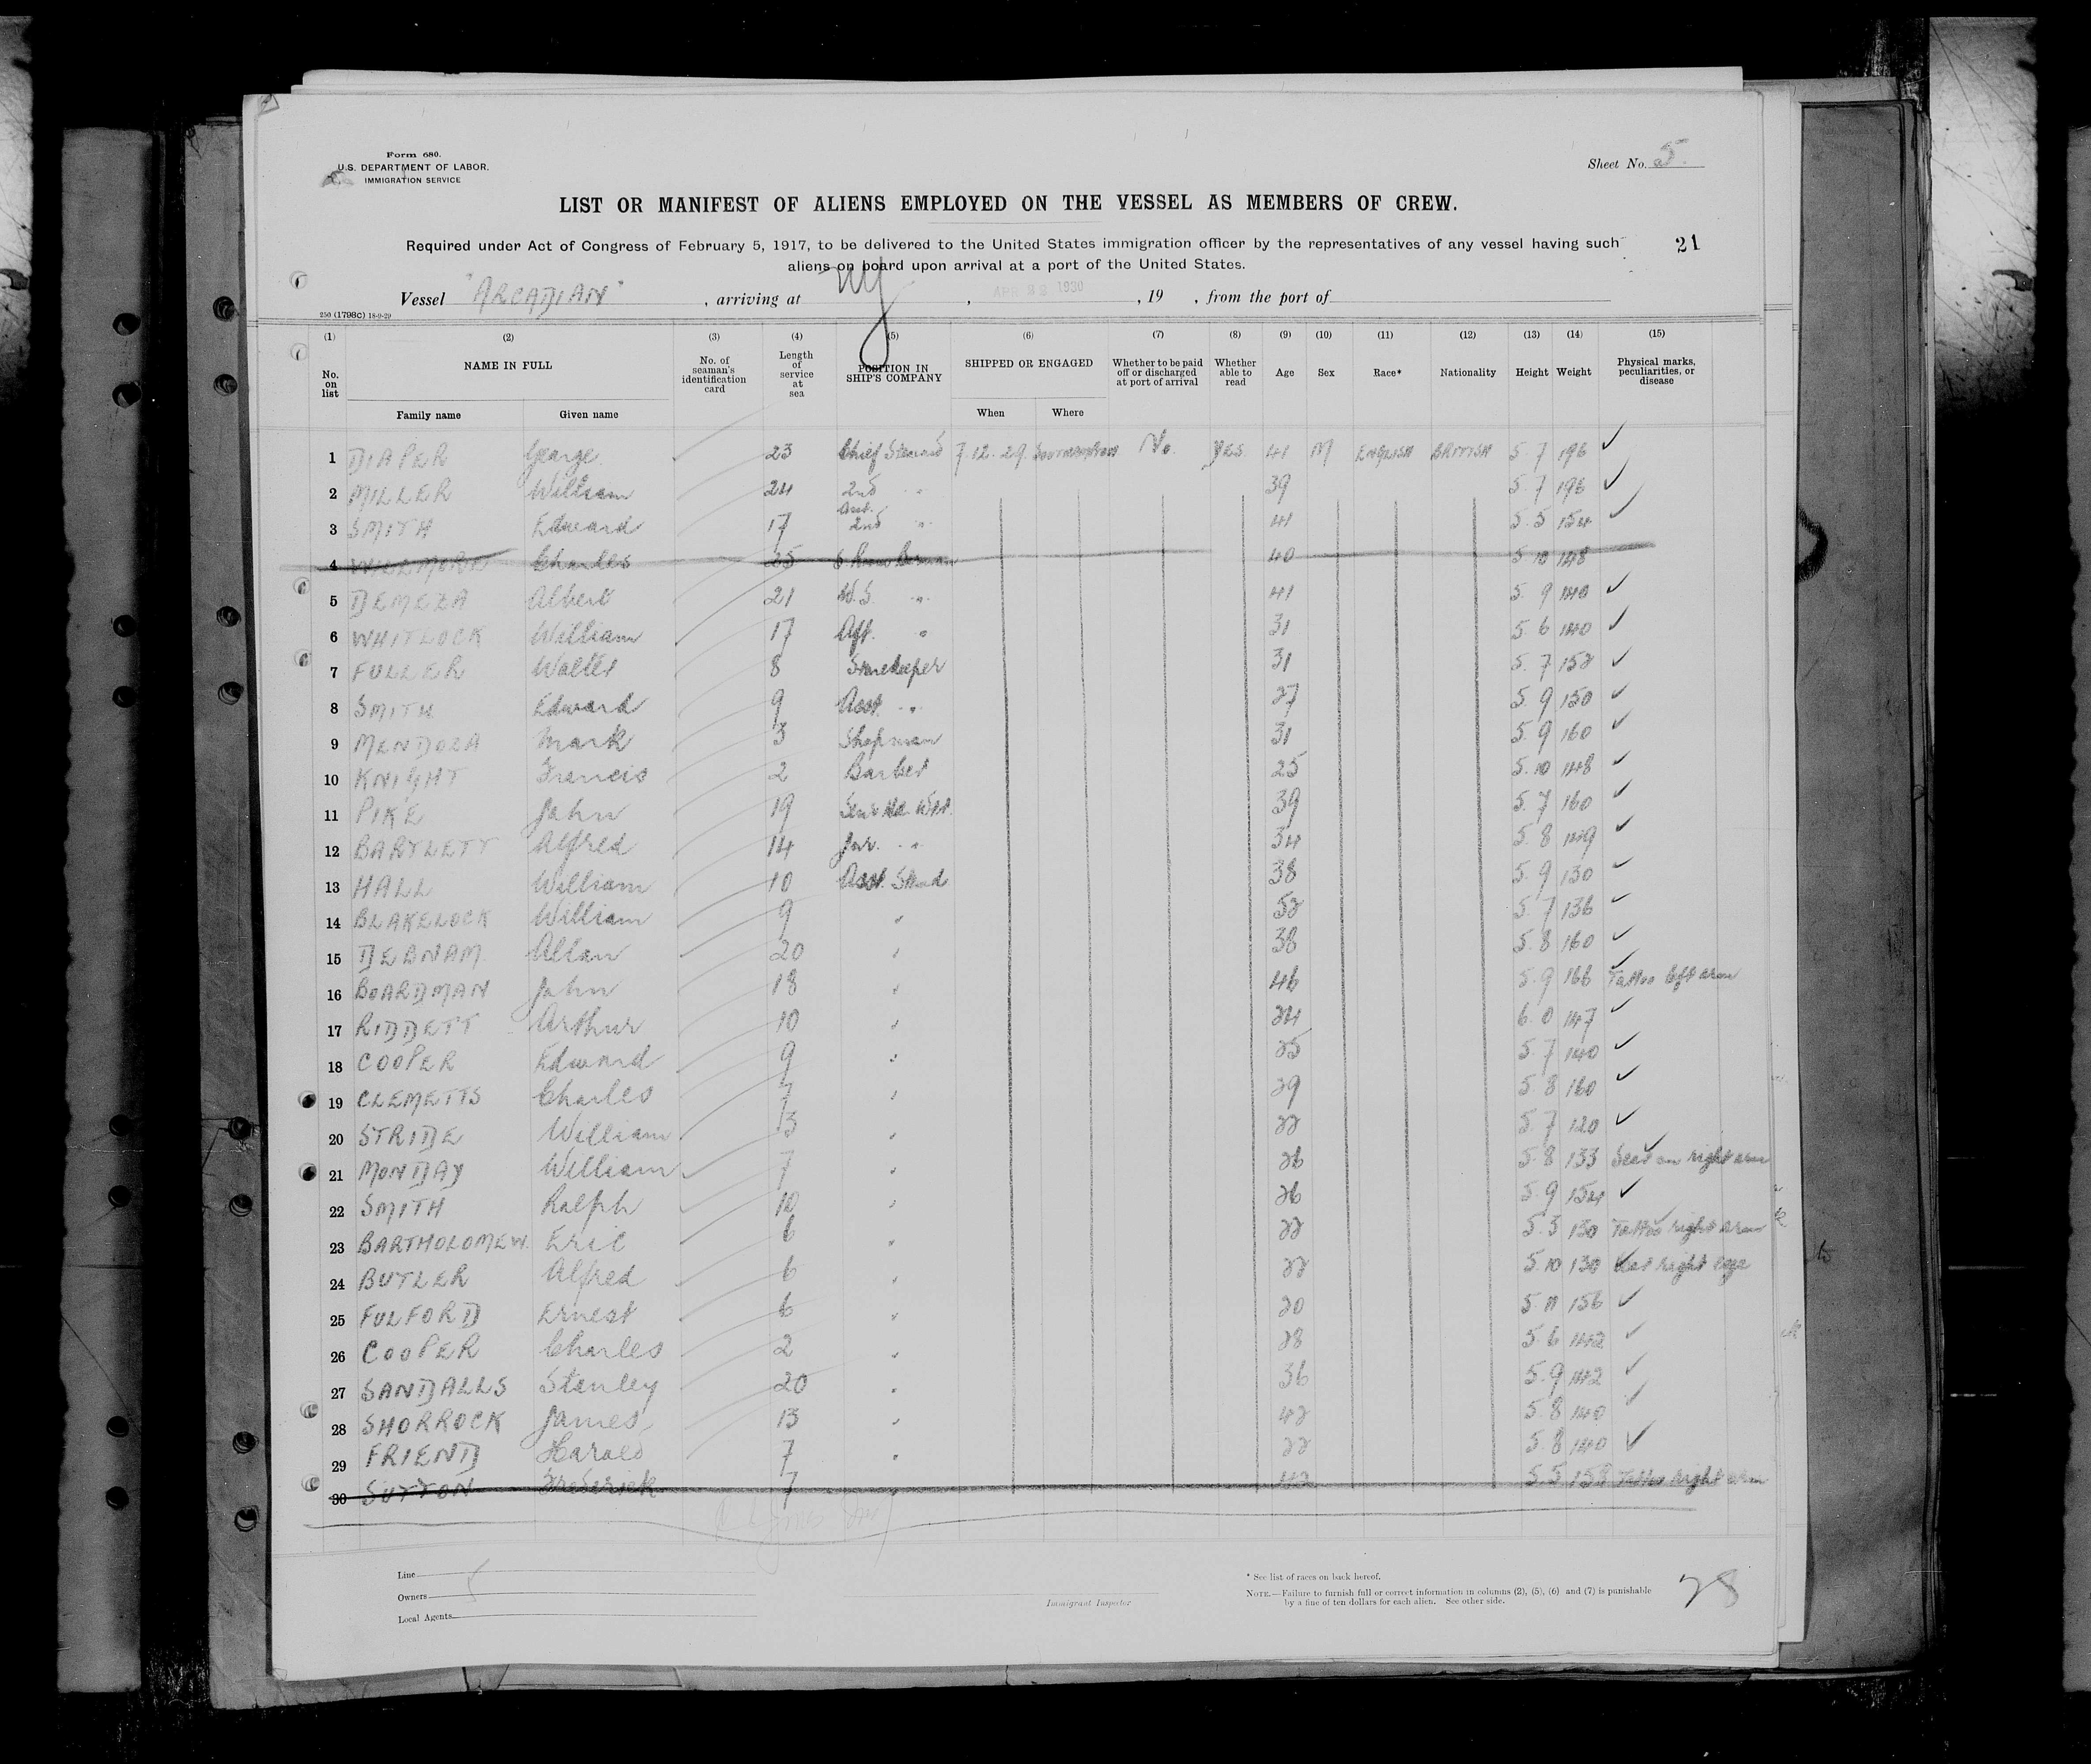 Form 680.
U.S. DEPARTMENT OF LABOR.
IMMIGRATION SERVICE
Sheet No. 5.
LIST OR MANIFEST OF ALIENS EMPLOYED ON THE VESSEL AS MEMBERS OF CREW.
Required under Act of Congress of February 5, 1917, to be delivered to the United States immigration officer by the representatives of any vessel having such
aliens on board upon arrival at a port of the United States.
21
Vessel "ARCADIAN", arriving at NY, APR 1930, 19 , from the port of
250 (1798c) 18-9-29
(1) (2) (3) (4) (5) (6) (7) (8) (9) (10) (11) (12) (13) (14) (15)
No. on list NAME IN FULL No. of seaman's identification card Length of service at sea POSITION IN SHIP'S COMPANY SHIPPED OR ENGAGED Whether to be paid off or discharged at port of arrival Whether able to read Age Sex Race* Nationality Height Weight Physical marks, peculiarities, or disease
Family name Given name When Where
1 DIAPER George 23 Chief Steward 7.12.29 SOUTHAMPTON No. YES. 41 M ENGLISH BRITISH 5 7 196 ✓
2 MILLER William 24 2nd " 39 5 7 196 ✓
3 SMITH Edward 17 Asst. 2nd " 41 5.5 154 ✓
4 Charles 35 40 5 10 148
5 DEMEZA Albert 21 W.S. " 41 5. 9 140 ✓
6 WHITLOCK William 17 Aft. " 31 5. 6 140 ✓
7 FULLER Walter 8 Storekeeper 31 5. 7 152 ✓
8 SMITH Edward 9 Asst. " 27 5. 9 150 ✓
9 MENDOZA Mark 3 Shopman 31 5. 9 160 ✓
10 KNIGHT Francis 2 Barber 25 5. 10 148 ✓
11 PIKE John 19 39 5. 7 160 ✓
12 BARTLETT Alfred 14 Jnr. " 34 5. 8 149 ✓
13 HALL William 10 Asst. Stwd 38 5. 9 130 ✓
14 BLAKELOCK William 9 " 52 5. 7 136 ✓
15 DEBNAM Allan 20 " 38 5. 8 160 ✓
16 BOARDMAN John 18 " 46 5. 9 166 Tattoo left arm
17 RIDDETT Arthur 10 " 24 6. 0 147 ✓
18 COOPER Edward 9 " 25 5. 7 140 ✓
19 CLEMETTS Charles 7 " 29 5 8 160 ✓
20 STRIDE William 3 " 22 5. 7 120 ✓
21 MONDAY William 7 " 26 5. 8 133 Scar on right arm
22 SMITH Ralph 10 " 26 5. 9 154 ✓
23 BARTHOLOMEW Eric 6 " 22 5. 5 130 Tattoo right arm
24 BUTLER Alfred 6 " 22 5. 10 130 right eye
25 FULFORD Ernest 6 " 20 5. 11 156 ✓
26 COOPER Charles 2 " 28 5 6 142 ✓
27 SANDALLS Stanley 20 " 36 5. 9 142 ✓
28 SHORROCK James 13 " 42 5. 8 140 ✓
29 FRIEND Harold 7 " 22 5. 8 140 ✓
30 SUTTON Frederick 7 " 42 5. 5 158 Tattoo right arm
Line
Owners
Local Agents
Immigrant Inspector
* See list of races on back hereof.
NOTE.—Failure to furnish full or correct information in columns (2), (5), (6) and (7) is punishable
by a fine of ten dollars for each alien. See other side.
28